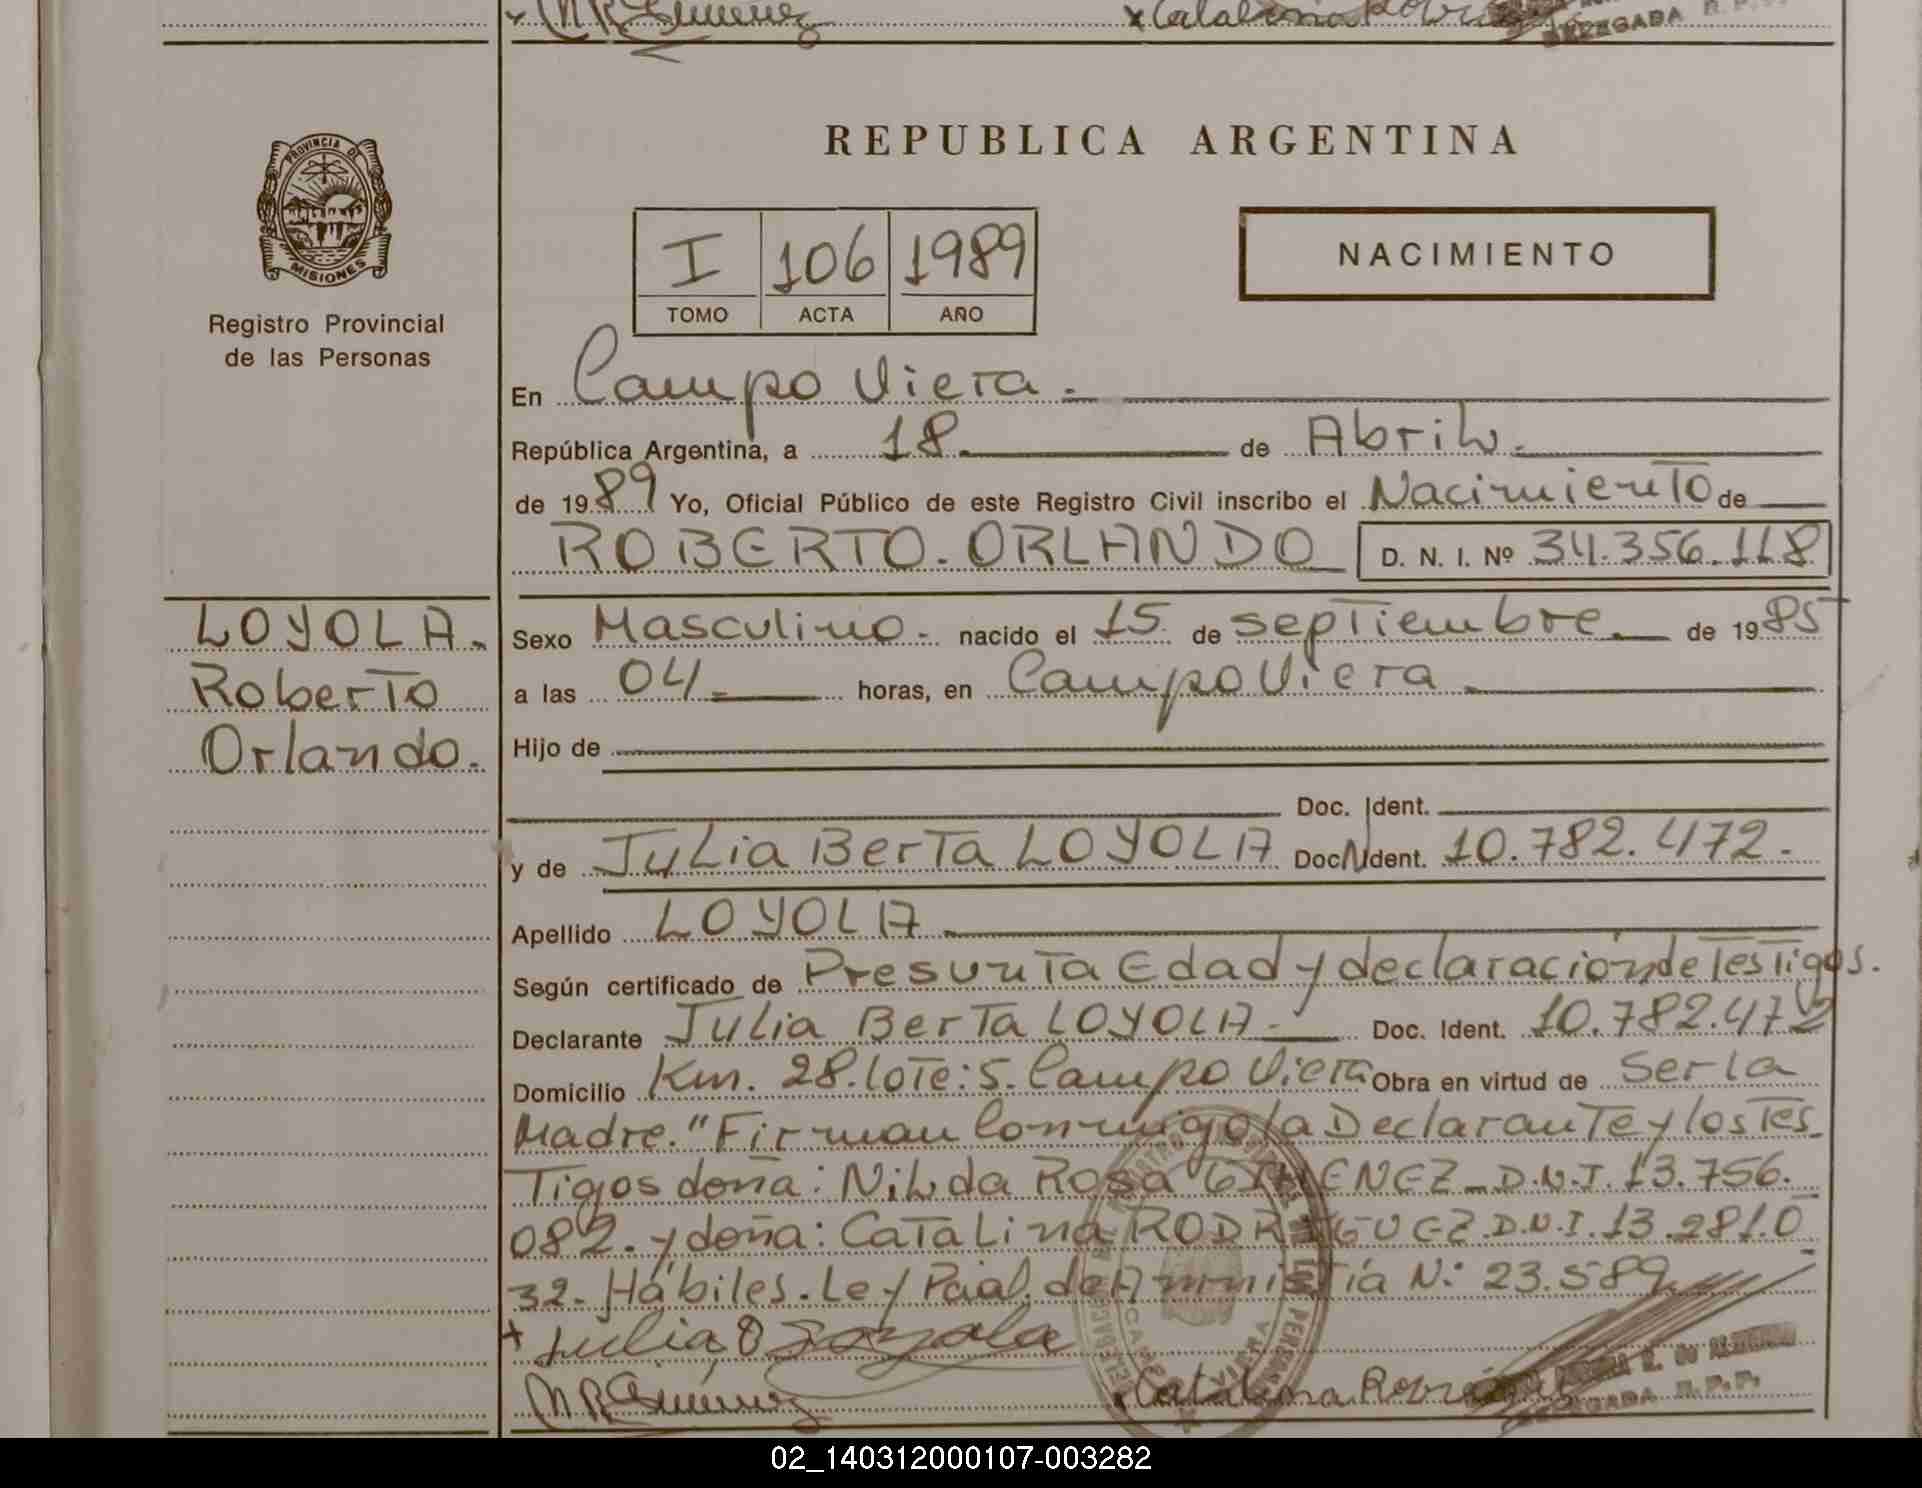 REPUBLICA ARGENTINA
PROVINCIA DE
MISIONES
Registro Provincial
de las Personas
I 106 1989
TOMO ACTA AÑO
NACIMIENTO
En Campo Viera.
República Argentina, a 18 de Abril.
de 1989 Yo, Oficial Público de este Registro Civil inscribo el Nacimiento de
ROBERTO. ORLANDO D. N. I. Nº 34.356.118
LOYOLA.
Roberto
Orlando.
Sexo Masculino. nacido el 15 de septiembre de 1985
a las 04 horas, en Campo Viera
Hijo de
Doc. Ident.
y de Julia Berta LOYOLA Doc. Ident. 10.782.472.
Apellido LOYOLA
Según certificado de Presunta Edad y declaración de Testigos.
Declarante Julia Berta LOYOLA. Doc. Ident. 10.782.472
Domicilio Km. 28. lote: 5. Campo Viera Obra en virtud de Ser la
Madre. "Firman Conmigo la Declarante y los Tes
Tigos doña: Nilda Rosa GIMENEZ D.N.I. 13.756.
082. y doña: Catalina RODRIGUEZ. D.N.I. 13.281.0
32. Hábiles. Ley Pcial. de Amnistía N: 23.589
Julia B Loyola
Catalina
DELEGADA R.P.P.
02_140312000107-003282